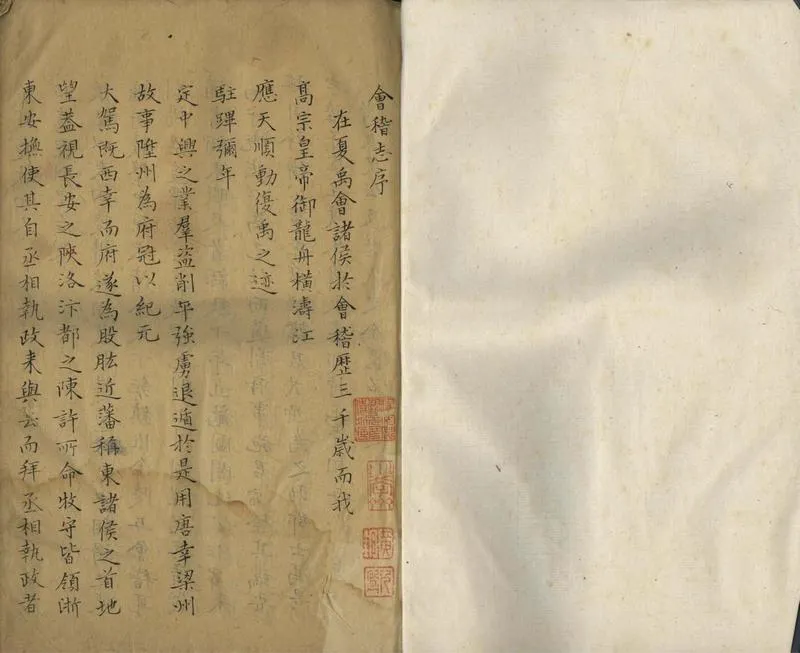 會稽志序
在夏禹會諸侯扵會稽歴三千歳而我
髙宗皇帝御龍舟横濤江
應天順動復禹之迹
駐蹕彌年
定中興之業羣盗削平強虜退遁扵是用唐幸梁州
故事陞州為府冠以紀元
大駕既西幸而府遂為股肱近藩稱東諸侯之首地
望葢視長安之陜洛汴都之陳許所命牧守皆領浙
東安撫使其自丞相執政来與去而拜丞相執政者